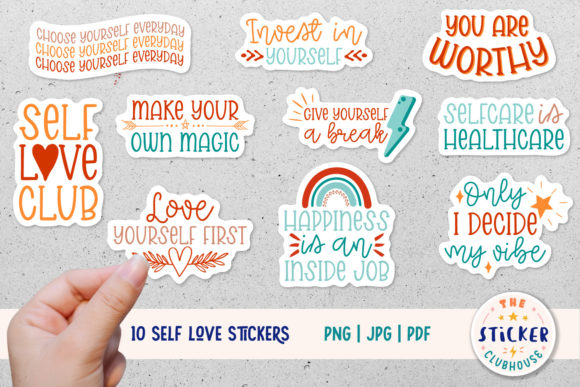 CHOOSE YOURSELF EVERYDAY
CHOOSE YOURSELF EVERYDAY
CHOOSE YOURSELF EVERYDAY
Invest in
YOURSELF
YOU ARE
WORTHY
SELF
LOVE
CLUB
MAKE YOUR
OWN MAGIC
GIVE YOURSELF
a break
SELFCARE is
HEALTHCARE
Love
YOURSELF FIRST
HAPPINESS
is an
INSIDE JOB
Only
I DECIDE
my vibe
10 SELF LOVE STICKERS
PNG | JPG | PDF
THE
STiCKER
CLUBHOUSE